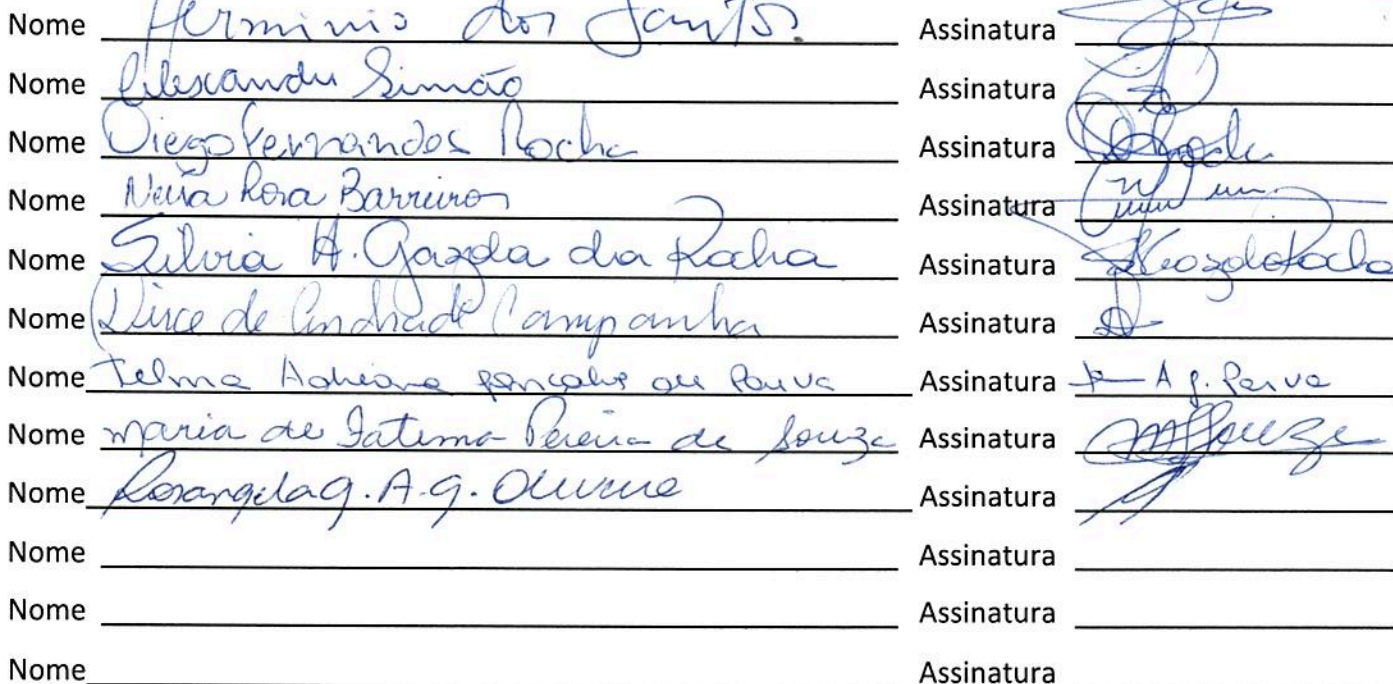 Nome Herminio dos Santos. Assinatura
Nome Alexandre Simão Assinatura
Nome Diego Fernandes Rocha Assinatura
Nome Neiva Rosa Barreiros Assinatura
Nome Silvia H. Gazda da Rocha Assinatura
Nome Dirce de Andrade Campanha Assinatura
Nome Telma Adriana Gonçalves de Paiva Assinatura A g. Paiva
Nome Maria de Fatima Pereira de Souza Assinatura
Nome Rosangela G. A. G. Oliveira Assinatura
Nome Assinatura
Nome Assinatura
Nome Assinatura